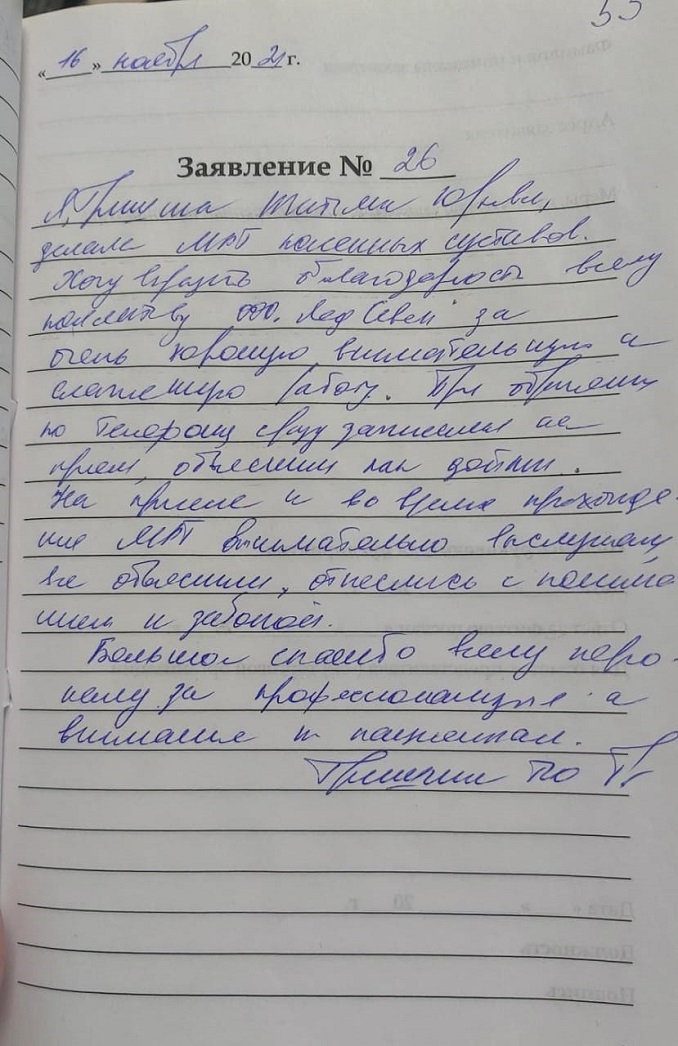 «16» ноября 2021 г.
Заявление № 26
Татьяна Юрьевна,
делала МРТ коленных суставов.
Хочу выразить благодарность всему
коллективу ООО. за
очень хорошую внимательную и
слаженную работу. При обращении
по телефону сразу записали на
прием, объяснили как дойти.
На приеме и во время прохожде-
ние МРТ внимательно выслушали,
все объяснили, отнеслись с понима
нием и заботой.
Большое спасибо всему персо-
налу за профессионализм и
внимание к пациентам.